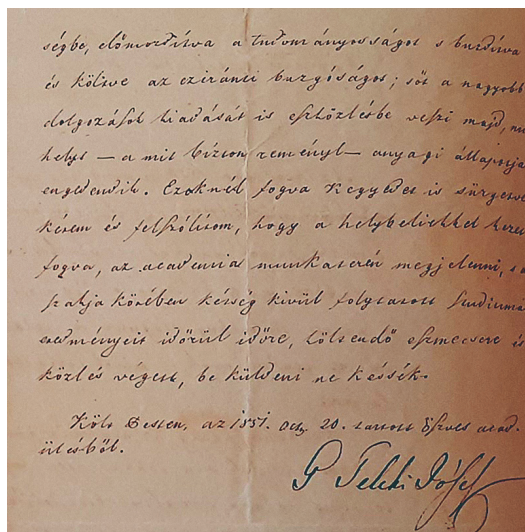 ségbe, előmozdítva a tudományosságot s buzdítva
és költve az eziránti buzgóságot; sőt a nagyobb
dolgozások kiadását is eszközlésbe veszi majd, mi
helyt — a mit bízton reményl — anyagi állapotja
engedendik. Ezeknél fogva Kegyedet is sürgetve
kérem és felszólítom, hogy a helybeliekkel kezet
fogva, az academia munkaterén megjelenni, s a
szakja körében kétség kivül folytatott studiuma
eredményeit időrül időre, töltendő eszmecsere és
közlés végett, be küldeni ne késsék.
Költ Pesten, az 1851. Oct. 20. tartott öszves acad.
ülésből.
G Teleki József